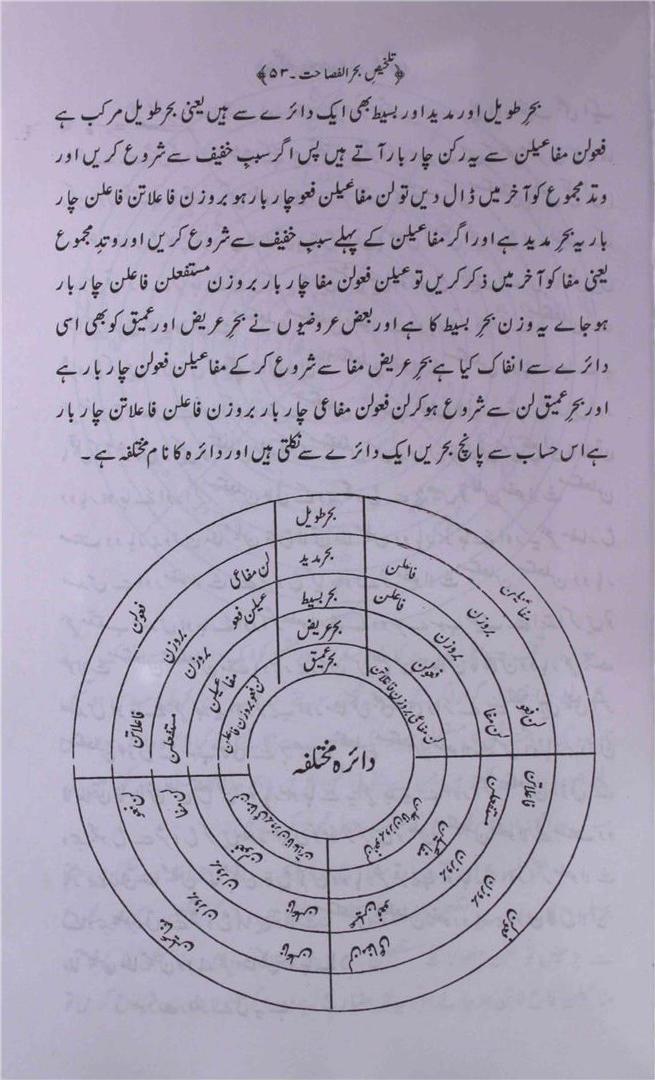 ﴿تلخیصِ بحر الفصاحت۔۵۳﴾
بحرِ طویل اور مدید اور بسیط بھی ایک دائرے سے ہیں یعنی بحر طویل مرکب ہے
فعولن مفاعیلن سے یہ رکن چار بار آتے ہیں پس اگر سببِ خفیف سے شروع کریں اور
وتد مجموع کو آخر میں ڈال دیں تو لن مفاعیلن فعو چار بار ہو بروزن فاعلاتن فاعلن چار
بار یہ بحرِ مدید ہے اور اگر مفاعیلن کے پہلے سببِ خفیف سے شروع کریں اور وتدِ مجموع
یعنی مفا کو آخر میں ذکر کریں تو عیلن فعولن مفا چار بار بروزن مستفعلن فاعلن چار بار
ہو جاے یہ وزن بحرِ بسیط کا ہے اور بعض عروضیوں نے بحرِ عریض اور عمیق کو بھی اسی
دائرے سے انفاک کیا ہے بحرِ عریض مفا سے شروع کر کے مفاعیلن فعولن چار بار ہے
اور بحرِ عمیق لن سے شروع ہو کر لن فعولن مفاعی چار بار بروزن فاعلن فاعلاتن چار بار
ہے اس حساب سے پانچ بحریں ایک دائرے سے نکلتی ہیں اور دائرہ کا نام مختلفہ ہے۔
بحر طویل
بحر مدید
بحر بسیط
بحر عریض
بحر عمیق
مفاعیلن
فاعلن
بروزن
لن فعو
فاعلن
بروزن
لن مفا
فعولن
لن مفاعی بروزن فاعلاتن
فعولن
لن مفاعی
بروزن
فاعلاتن
عیلن فعو
بروزن
مستفعلن
مفاعیلن
لن فعو بروزن فاعلن
دائرہ مختلفہ
فاعلاتن
بروزن
لن مفاعی
فعولن
مستفعلن
بروزن
عیلن فعو
مفاعیلن
لن فعو بروزن فاعلن
لن فعو
بروزن
فاعلن
مفاعیلن
لن مفا
بروزن
فاعلن
فعولن
لن مفاعی بروزن فاعلاتن